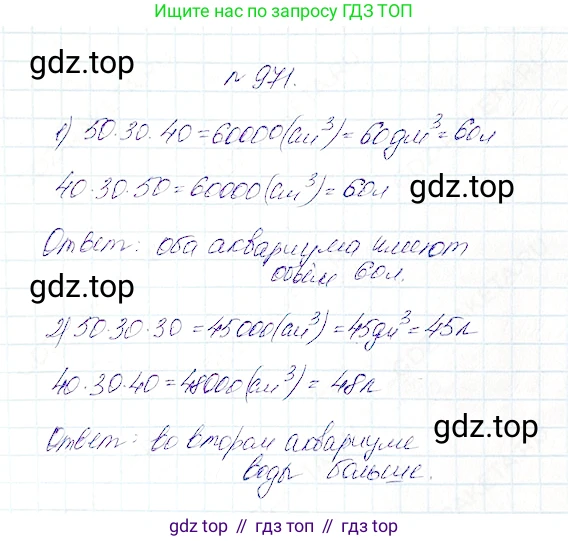 Ищите нас по запросу ГДЗ ТОП
gdz.top
№ 971.
1) 50·30·40=60000(см³)=60дм³=60л
40·30·50=60000(см³)=60л
gdz.top
Ответ: оба аквариума имеют
объём 60л.
gdz.top
2) 50·30·30=45000(см³)=45дм³=45л
40·30·40=48000(см³)=48л
gdz.top
Ответ: во втором аквариуме
воды больше.
gdz top // гдз топ // gdz top // гдз топ